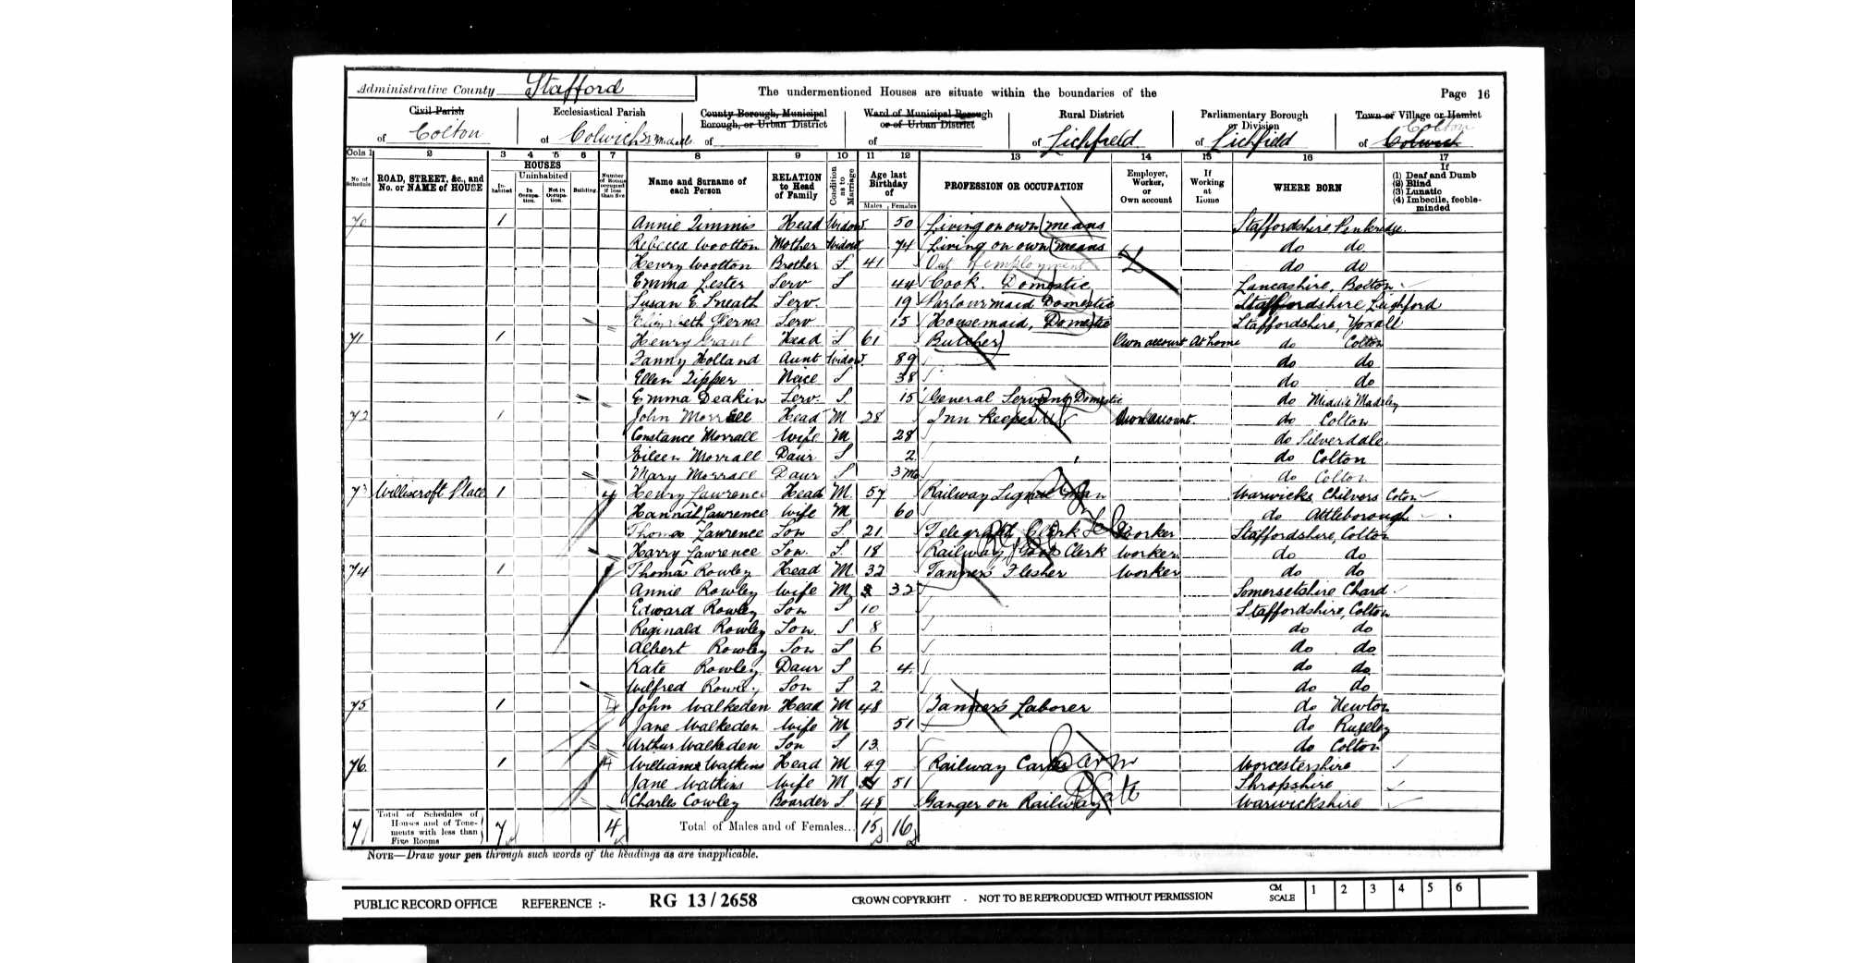 Administrative County Stafford The undermentioned Houses are situate within the boundaries of the Page 16
Civil Parish Ecclesiastical Parish County Borough, Municipal Borough, or Urban District Ward of Municipal Borough or of Urban District Rural District Parliamentary Borough or Division Town or Village or Hamlet
of Colton of Colwich St Michael of of of Lichfield of Lichfield of Colton Colwich
Cols 1 2 3 4 5 6 7 8 9 10 11 12 13 14 15 16 17
No. of Schedule ROAD, STREET, &c., and No. or NAME of HOUSE HOUSES Inhabited Uninhabited In Occupation Not in Occupation Building Number of Rooms occupied if less than five Name and Surname of each Person RELATION to Head of Family Condition as to Marriage Age last Birthday of Males Females PROFESSION OR OCCUPATION Employer, Worker, or Own account If Working at Home WHERE BORN If (1) Deaf and Dumb (2) Blind (3) Lunatic (4) Imbecile, feeble-minded
70 1 Annie Timmis Head Widow 50 Living on own means Staffordshire Penkridge
Rebecca Wootton Mother Widow 74 Living on own means do do
Henry Wootton Brother S 41 Out of employment do do
Emma Lester Serv S 44 Cook. Domestic Lancashire, Bolton
Susan E. Sneath Serv. 19 Parlourmaid Domestic Staffordshire
Serv 15 Housemaid, Domestic Staffordshire, Yoxall
71 1 Henry Grant Head S 61 Butcher Own account At home do Colton
Fanny Holland Aunt Widow 89 do do
Ellen Tipper Niece S 38 do do
Emma Deakin Serv. S. 15 General Servant Domestic do Middle Madeley
72 1 John Morrall Head M 28 Inn Keeper Own account. do Colton
Constance Morrall Wife M 28 do Silverdale
Eileen Morrall Daur S 2 do Colton
Mary Morrall Daur S 3 mo do Colton
73 Williscroft Place 1 4 Henry Lawrence Head M 57 Railway Signal Man Warwicks Chilvers Coton
Hannah Lawrence Wife M 60 do Attleborough
Thomas Lawrence Son S 21 Telegraph Clerk Worker Staffordshire, Colton
Harry Lawrence Son. S. 18 Railway Clerk Worker do do
74 1 Thomas Rowley Head M 32 Tanners Flesher Worker do do
Annie Rowley Wife M 32 Somersetshire Chard
Edward Rowley Son S 10 Staffordshire, Colton
Reginald Rowley Son. S 8 do do
Albert Rowley Son S 6 do do
Kate Rowley Daur S 4 do do
Wilfred Rowley Son S 2 do do
75 1 4 John Walkeden Head M 48 Tanners Laborer do Newton
Jane Walkeden Wife M 51 do Rugeley
Arthur Walkeden Son S 13 do Colton
76 1 4 William Watkins Head M 49 Railway Worcestershire
Jane Watkins Wife M 51 Shropshire
Charles Cowley Boarder S 48 Ganger on Railway Warwickshire
7 Total of Schedules of Houses and of Tenements with less than Five Rooms 7 4 Total of Males and of Females... 15 16
NOTE—Draw your pen through such words of the headings as are inapplicable.
PUBLIC RECORD OFFICE REFERENCE :- RG 13/2658 CROWN COPYRIGHT - NOT TO BE REPRODUCED WITHOUT PERMISSION CM SCALE 1 2 3 4 5 6